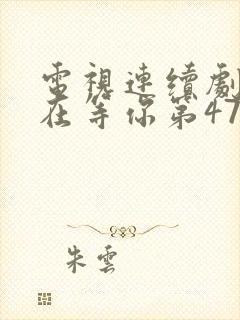 電視連續劇
在等你第47
朱雲